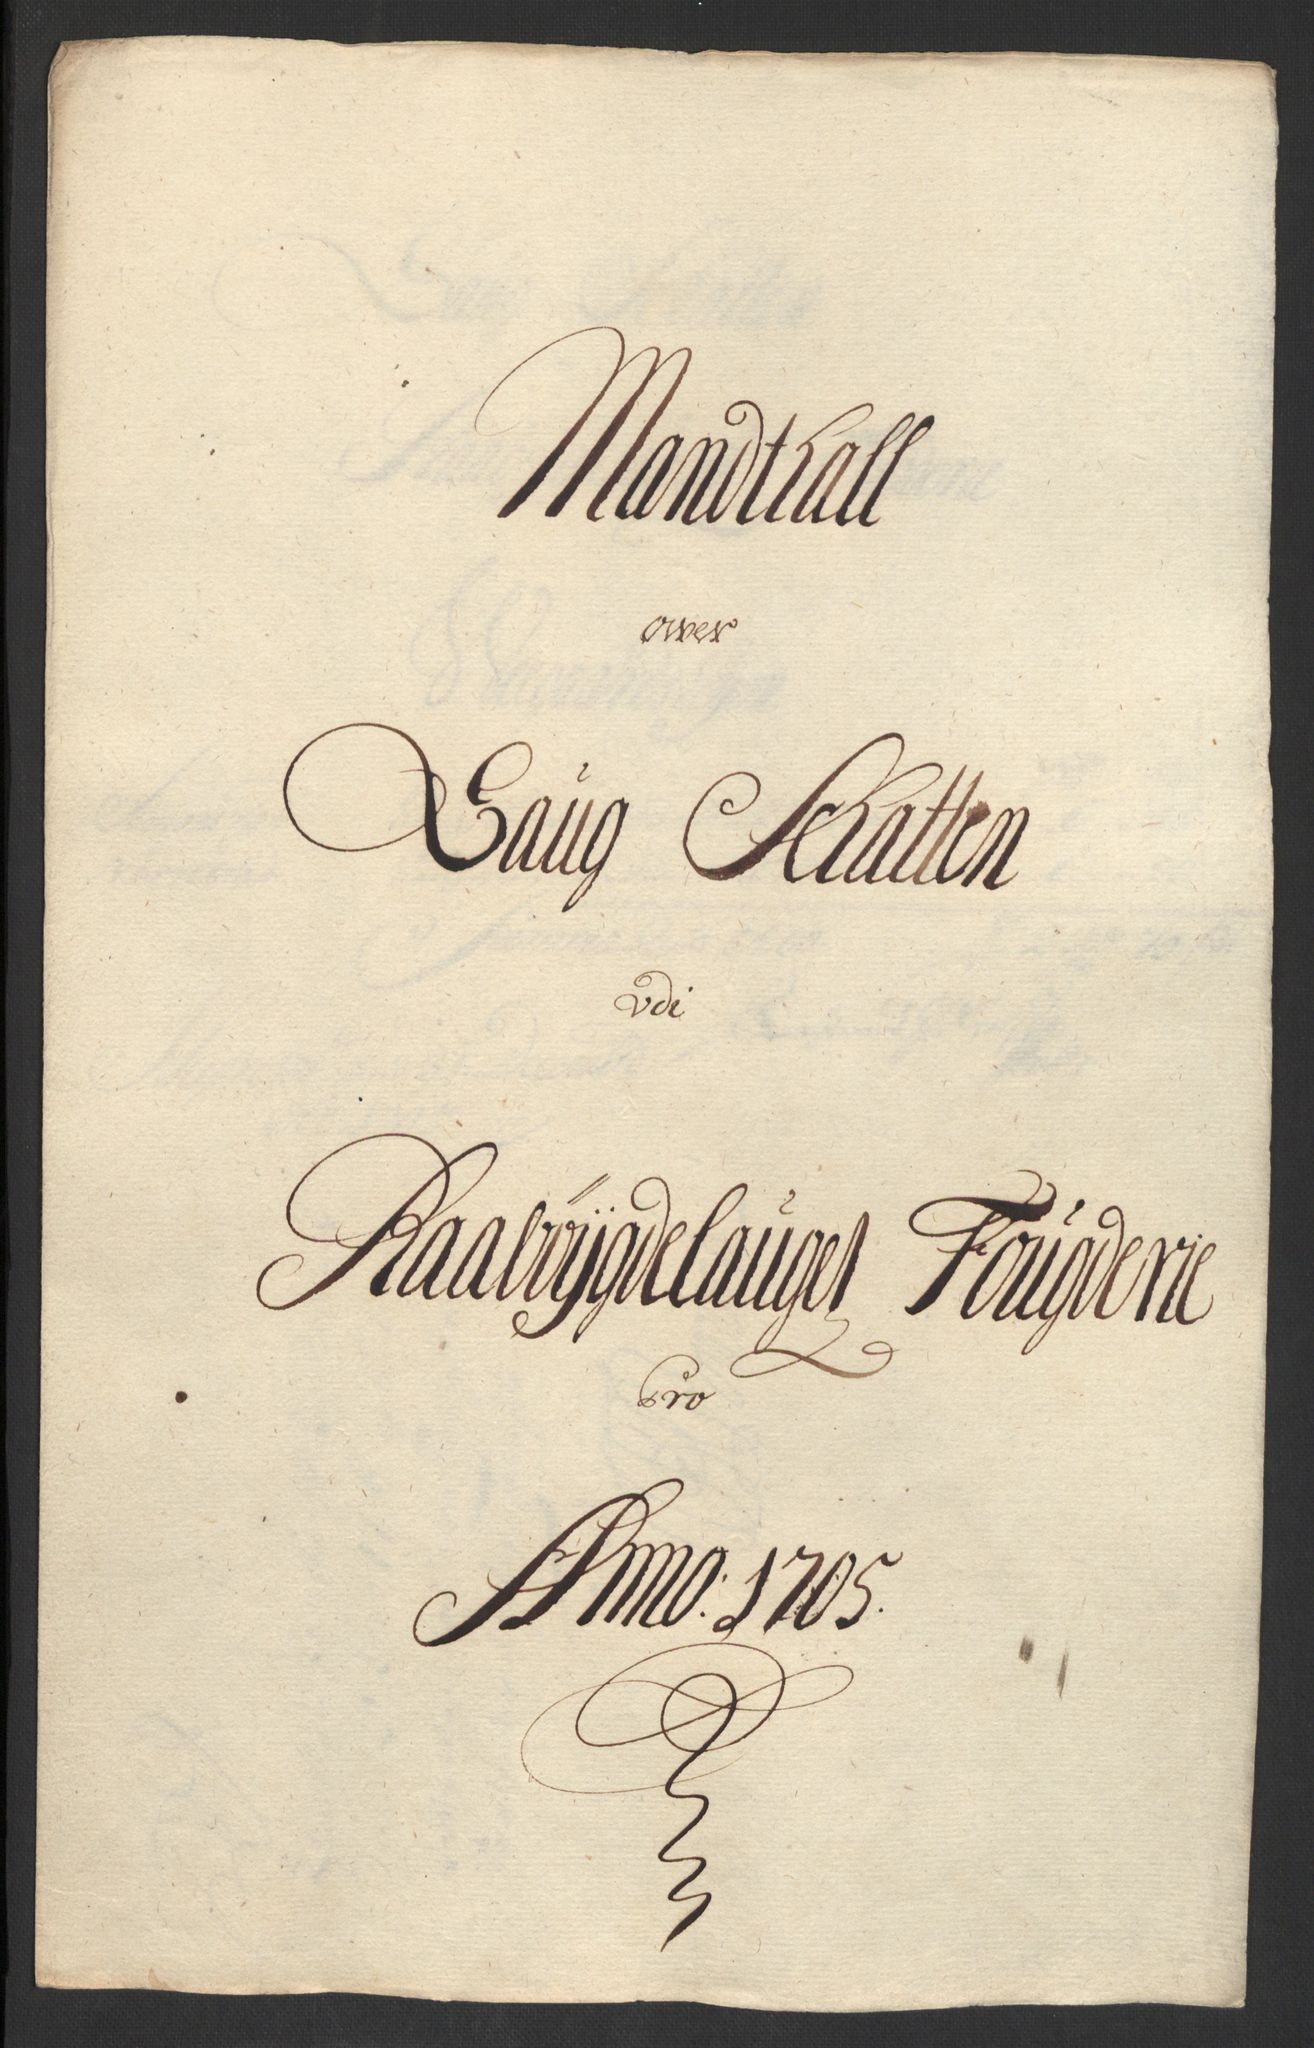 Mandthall
over
Laug Schatten
vdi
Raabøÿgdelauges Fougderie
pro
Anno: 1705.